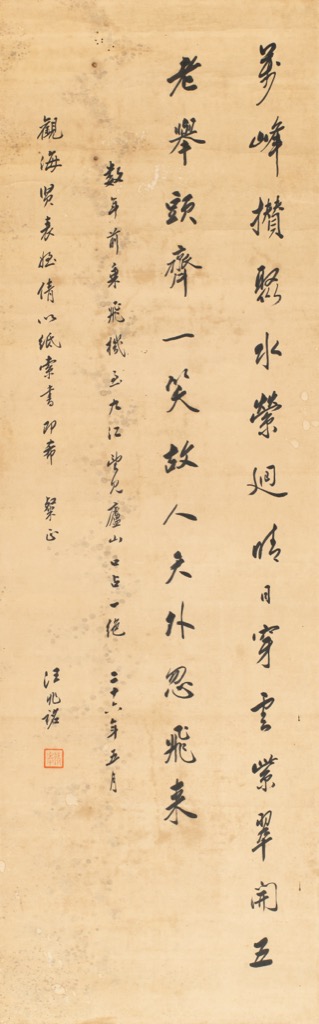 萬峰攢聚水縈迴晴日穿雲紫翠開五
老舉頭齊一笑故人天外忽飛来
數年前乘飛機至九江望見廬山口占一絕 二十六年五月
觀海賢表姪倩以紙索書即希 粲正
汪兆